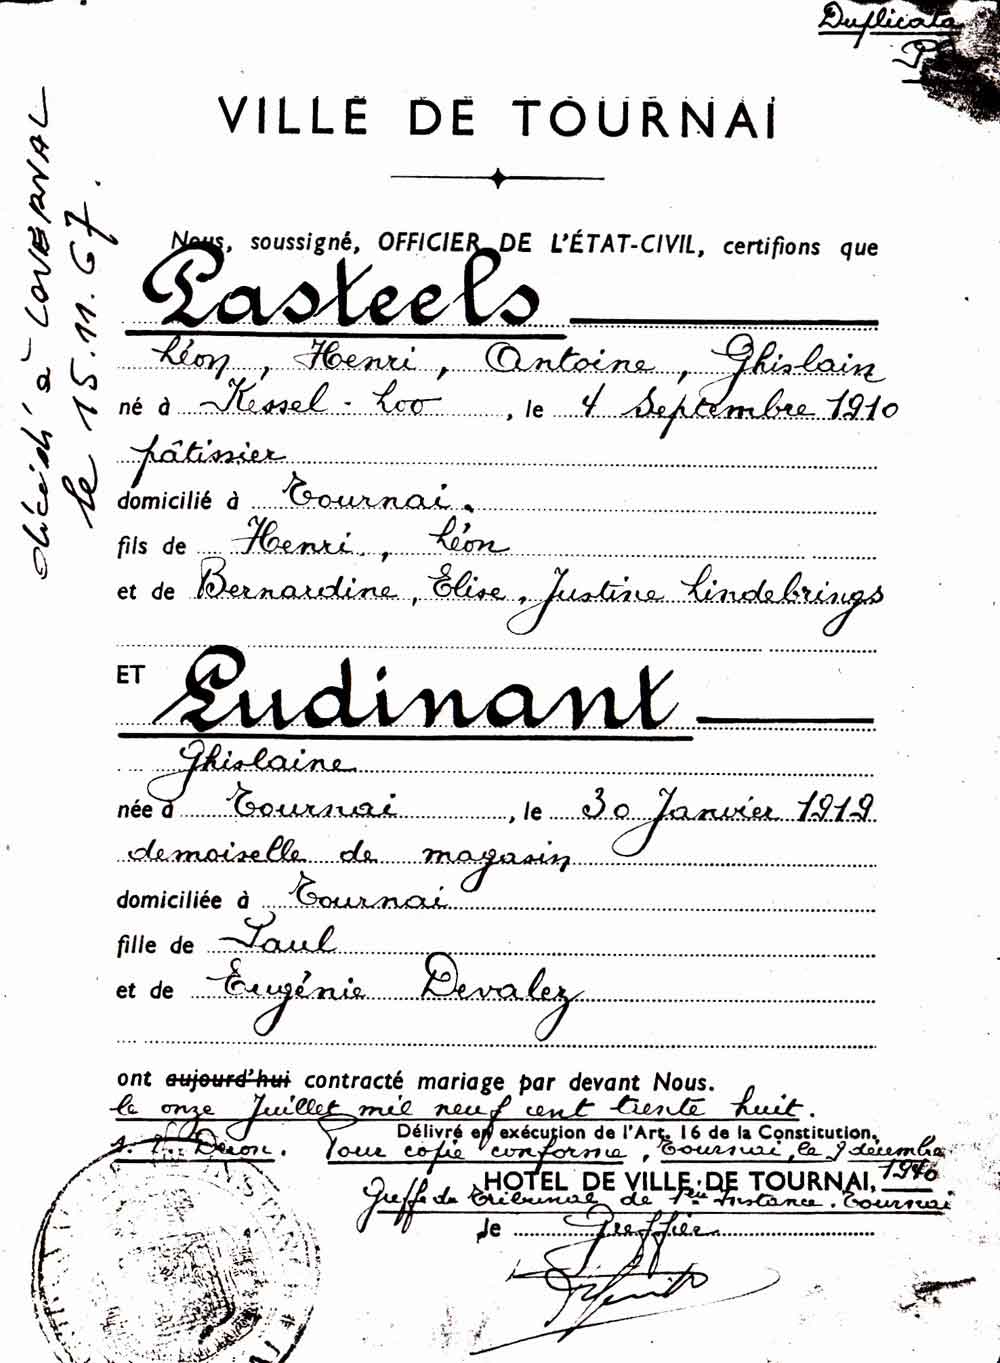 Duplicata
VILLE DE TOURNAI
décédé à LOVERVAL
le 15.11.67.
Nous, soussigné, OFFICIER DE L'ÉTAT-CIVIL, certifions que
Pasteels
Léon, Henri, Antoine, Ghislain
né à Kessel-Loo, le 4 Septembre 1910
pâtissier
domicilié à Tournai.
fils de Henri, Léon
et de Bernardine, Elise, Justine Lindebrings
ET
Pudinant
Ghislaine
née à Tournai, le 30 Janvier 1919
demoiselle de magasin
domiciliée à Tournai
fille de Paul
et de Eugénie Devalez
ont aujourd'hui contracté mariage par devant Nous.
le onze Juillet mil neuf cent trente huit.
Délivré en exécution de l'Art. 16 de la Constitution.
Pour copie conforme, Tournai, le 9 décembre
1940
HOTEL DE VILLE DE TOURNAI,
Greffe du Tribunal de 1ère Instance. Tournai
le Greffier